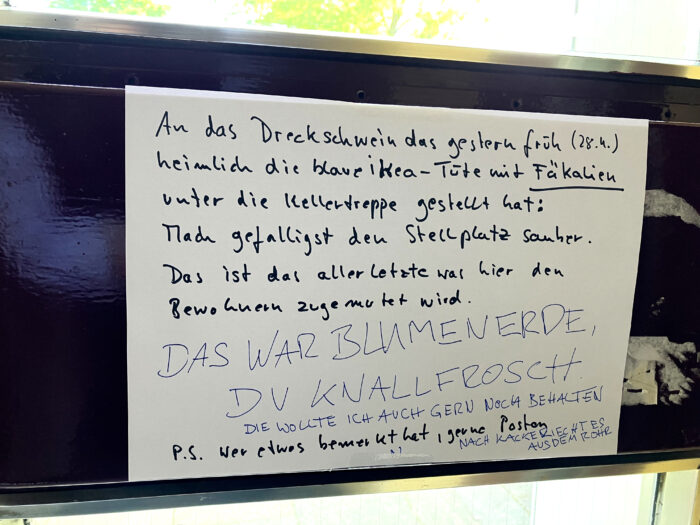 An das Dreckschwein das gestern früh (28.4.)
heimlich die blaue iKea-Tüte mit Fäkalien
unter die Kellertreppe gestellt hat:
Mach gefälligst den Stellplatz sauber.
Das ist das allerletzte was hier den
Bewohnern zugemutet wird.
DAS WAR BLUMENERDE,
DU KNALLFROSCH.
DIE WOLLTE ICH AUCH GERN NOCH BEHALTEN
P.S. wer etwas bemerkt hat, gerne Posten
NACH KACKE RIECHT ES
AUS DEM ROHR